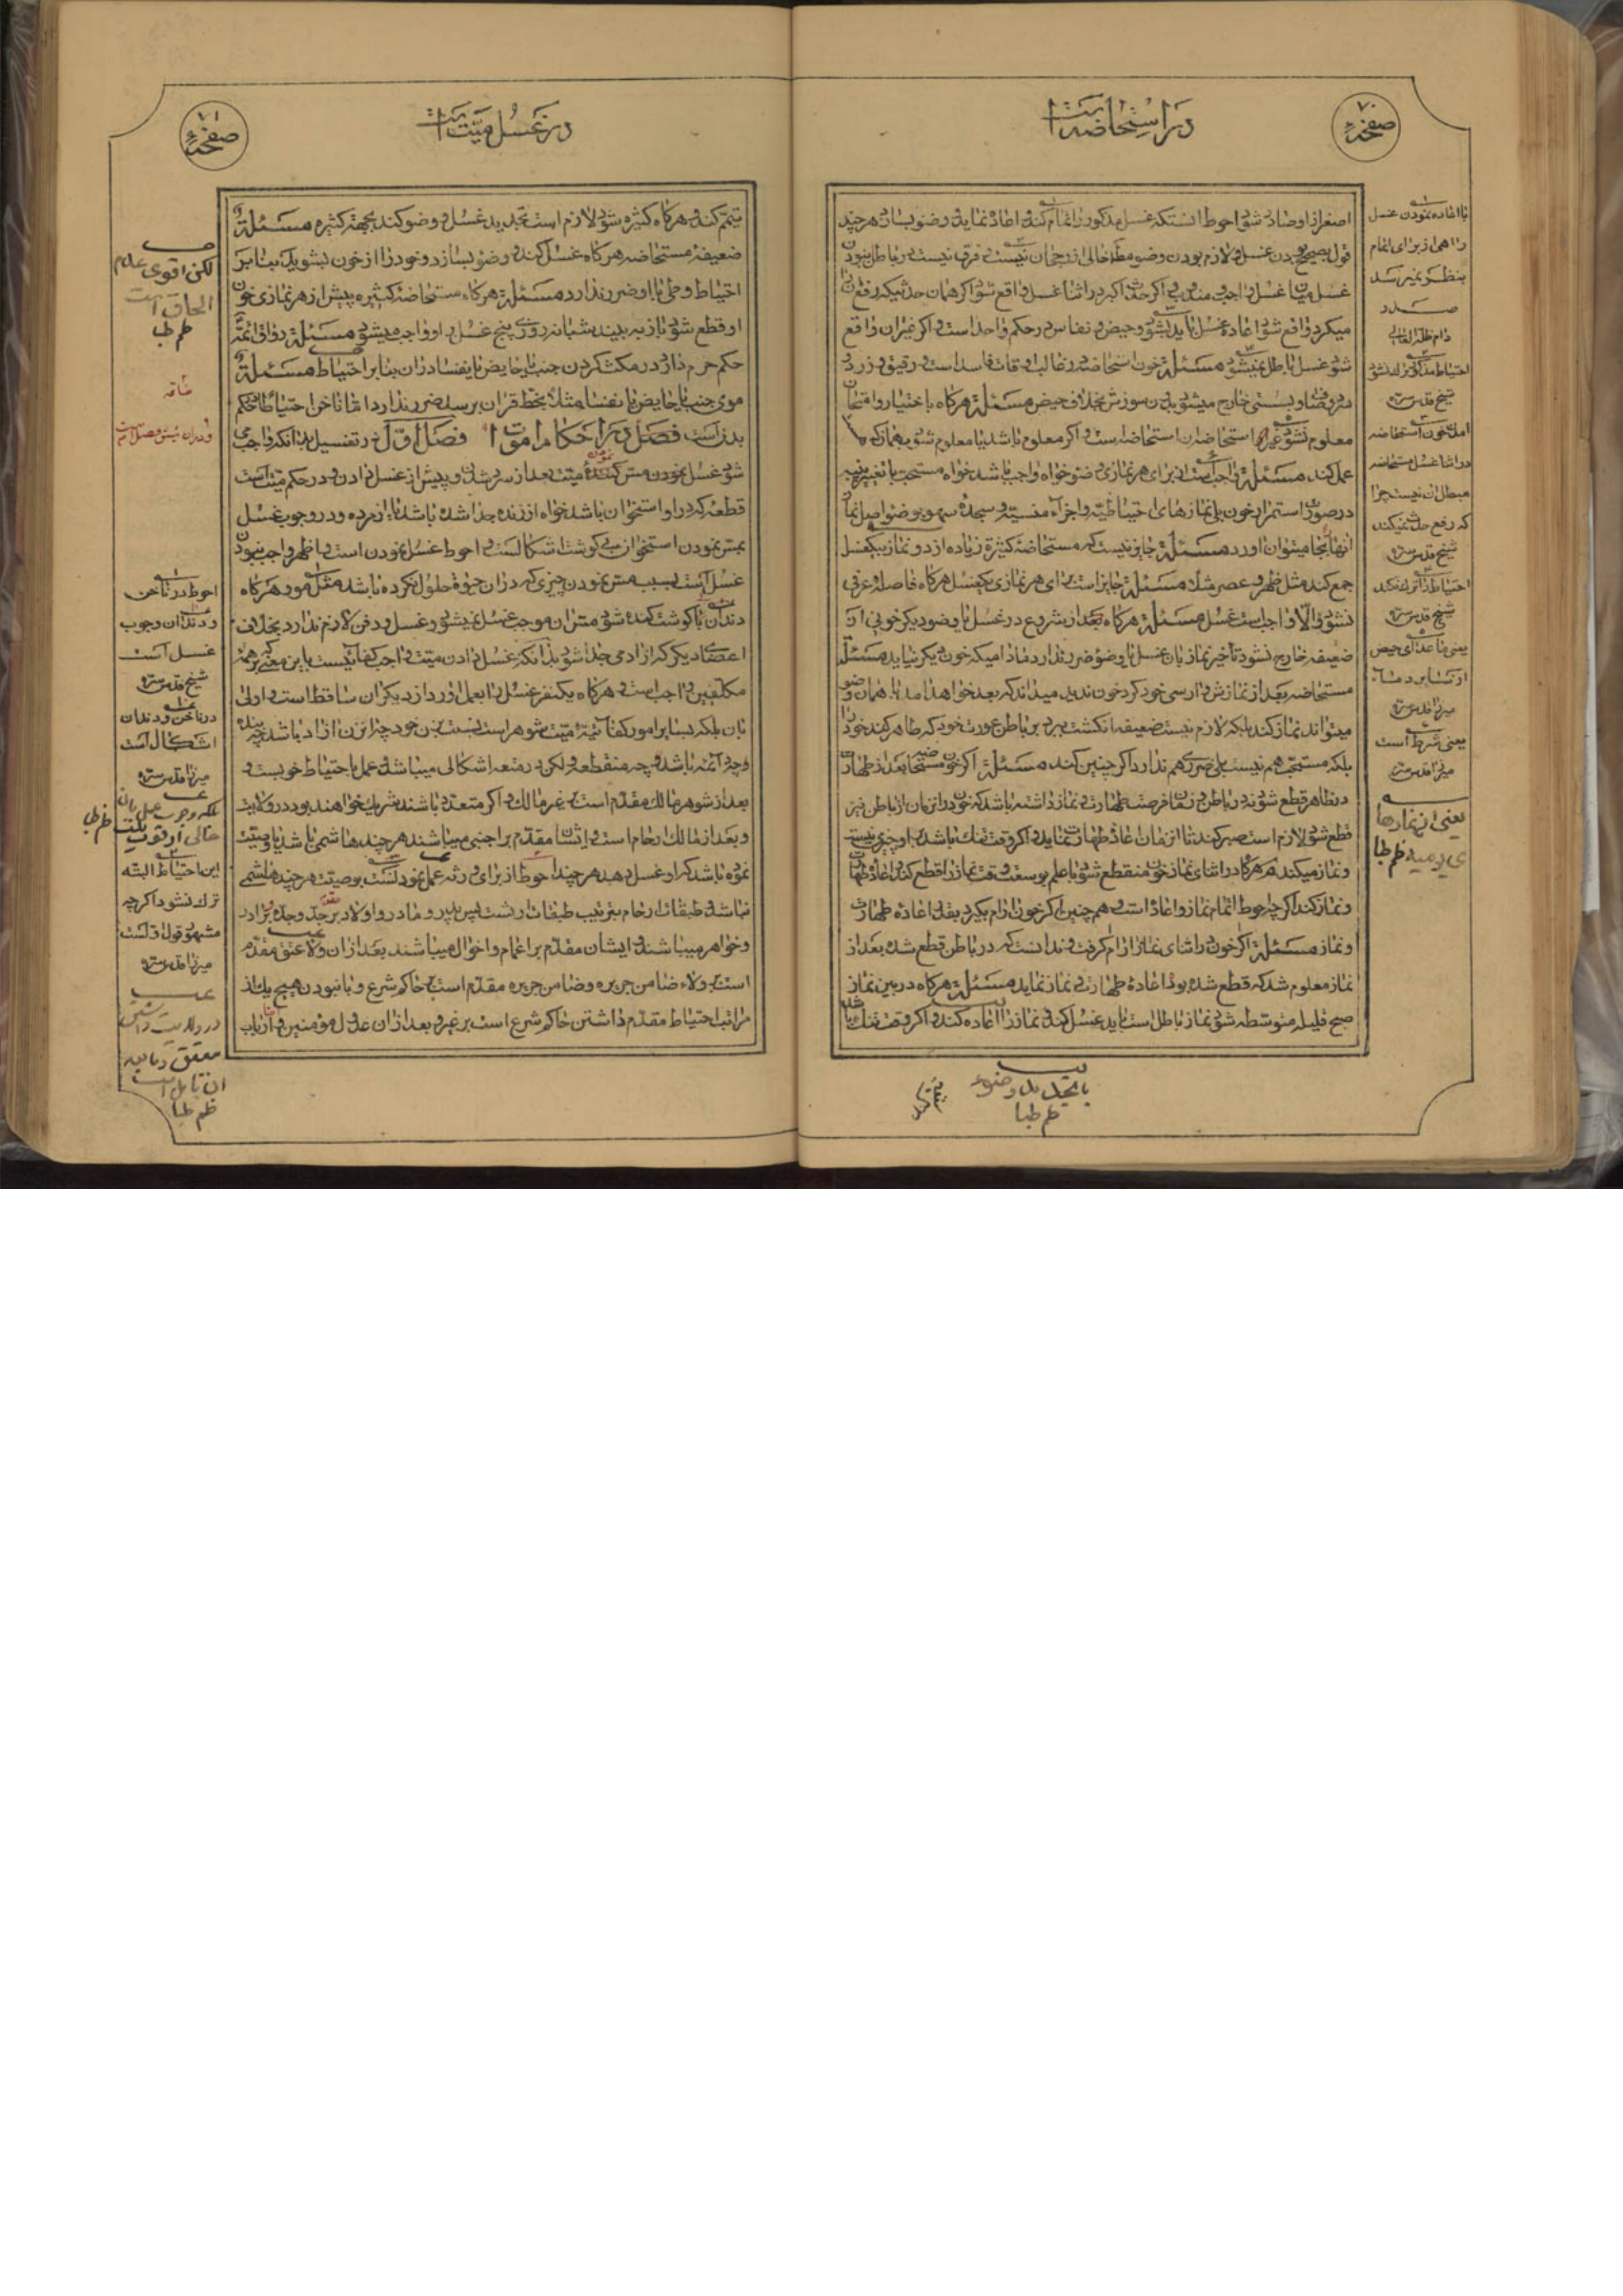 صفحه ۷۰
در استحاضه است
اصغر از او صادر شود احوط آنستکه غسل مذکور را تمام کند و اعاده نماید و وضو بسازد هر چند
قول بصحیح بودن غسل و لازم بودن وضو مطلقا خالی از رجحان نیست و فرق نیست در باطل نبودن
غسل میان غسل واجب و مندوب و اگر حدث اکبر در اثناء غسل واقع شود اگر همان حدثیکه رفع آنرا
میکرد واقع شود اعادهٔ غسل باید بشود و حیض و نفاس در حکم واحد است و اگر غیر آن واقع
شود غسل باطل نمیشود مسئلة خون استحاضه در غالب اوقات فاسد است و رقیق و زرد
و بسستی خارج میشود بدون سوزش بخلاف حیض مسئلة هرگاه باختیار و امتحان
معلوم نشود استحاضه است و اگر معلوم باشد یا معلوم شود بهمان
عمل کند مسئلة واجب است از برای هر نمازی وضو خواه واجب باشد خواه مستحب با تغییر پنبه
در صورت استمرار خون بلی نمازهای احتیاطیه و اجزاء منسیه و سجدهٔ سهو بوضو اصل نماز
آنها بجا میتوان آورد مسئلة جایز نیست که مستحاضهٔ کثیره زیاده از دو نماز بیکغسل
جمع کند مثل ظهر و عصر مثلا مسئلة جایز است برای هر نمازی یکغسل هرگاه فاصلهٔ عرفی
نشود و الا واجب است غسل مسئلة هرگاه بعد از شروع در غسل یا وضو دیگر خونی از
ضعیفه خارج نشود تأخیر نماز بآن غسل یا وضو ضرر ندارد مادامیکه خون دیگر نیاید مسئلة
مستحاضه بعد از نمازش وارسی خود کرد خون ندید میداند که بعد خواهد آمد با همان وضو
میتواند نماز کند بلکه لازم نیست ضعیفه انگشت ببرد بر باطن عورت خود که طاهر کند خود را
بلکه مستحب هم نیست بلی ضرری هم ندارد اگر چنین کند مسئلة اگر خون مستحاضه بعد از طهارت
در ظاهر قطع شود نه در باطن و زمان فرصت طهارت و نماز داشته باشد که خون در آنزمان از باطن نیز
قطع شود لازم است صبر کند تا آنزمان اعادهٔ طهارت نماید و اگر وقت تنک باشد بر او چیزی نیست
و نماز میکند و هرگاه در اثنای نماز خون منقطع شود با علم بوسعت وقت نماز را قطع کند اعاده طهارت
و نماز کند اگرچه احوط اتمام نماز و اعاده است و هم چنین اگر خون آرام بگیرد بقدر اعادهٔ طهارت
و نماز مسئلة اگر خون در اثنای نماز آرام گرفت و ندانست که در باطن قطع شده بعد از
نماز معلوم شد که قطع شده بود اعادهٔ طهارت و نماز نماید مسئلة هرگاه در بین نماز
صبح قلیله متوسطه شود نماز باطل است باید غسل کند و نماز را اعاده کند و اگر وقت تنک باشد
با تجدید وضوء
ظم طبا
تیمم کند
با اعاده نمودن غسل
راهی از برای اتمام
بنظر نمیرسد
صدر
دام ظله العالی
احتیاط مذکور ترک نشود
شیخ قدس سره
آمدن خون استحاضه
در اثناء غسل مستحاضه
مبطل آن نیست چرا
که رفع حدث نمیکند
شیخ قدس سره
احتیاط را ترک نکند
شیخ قدس سره
یعنی ماعدای حیض
میرزا قدس سره
یعنی شرط است
میرزا قدس سره
یعنی از نمازها
ی یومیه ظم طبا
صفحه ۷۱
در غسل میت است
تیمم کند و هرگاه کثیره شود لازم است تجدید غسل و وضو کند بجهة کثیره مسئلة
ضعیفهٔ مستحاضه هرگاه غسل کند و وضو بسازد و خود را از خون بشوید بنا بر
احتیاط وطی با او ضرر ندارد مسئلة هرگاه مستحاضهٔ کثیره پیش از هر نمازی خون
او قطع شود باز به بیند شبانه روزی پنج غسل بر او واجب میشود مسئلة رواق ائمه
حکم حرم دارد در مکث کردن جنب یا حایض یا نفسا در آن بنا بر احتیاط مسئلة
موی جنب یا حایض یا نفسا مثلا بخط قرآن برسد ضرر ندارد اما ناخن احتیاطا حکم
بدن است فصل در احکام اموات فصل اول در تفسیل بدانکه واجب می
شود غسل نمودن مس کنندهٔ میت بعد از سرد شدن و پیش از غسل دادن و در حکم میت است
قطعهٔ که در او استخوان باشد خواه از زنده جدا شده باشد یا از مرده و در وجوب غسل
بمس نمودن استخوان بی گوشت اشکالست و احوط غسل نمودن است و اظهر واجب نبودن
غسل است بسبب مس نمودن چیزی که در آن حیوة حلول نکرده باشد مثل مو و هرگاه
دندان با گوشت کنده شود مس آن موجب غسل نمیشود و غسل و دفن لازم ندارد بخلاف
اعضاء دیگر که از آدمی جدا شود بدانکه غسل دادن میت واجب کفائیست باین معنی که بر همهٔ
مکلفین واجب است و هرگاه یکنفر غسل را بعمل آورد از دیگران ساقط است و اولی
بآن بلکه بسایر امور کفائیهٔ میت شوهر است نسبت بزن خود چه آنزن آزاد باشد چه بنده
و چه دائمه باشد و چه منقطعه ولکن در متعه اشکالی میباشد و عمل باحتیاط خوبست و
بعد از شوهر مالک مقدم است بر غیر مالک و اگر متعدد باشند شریک خواهند بود در ولایت
و بعد از مالک ارحام است و ایشان مقدم بر اجنبی میباشند هر چند هاشمی باشد یا وصیت
نموده باشد که او غسل بدهد هر چند احوط از برای ورثه عمل نمودنست بوصیت هر چند هاشمی
نباشد و طبقات ارحام بترتیب طبقات ارث است پس پدر و مادر و اولاد بر جد و جده و برادر
و خواهر میباشند و ایشان مقدم بر اعمام و اخوال میباشند بعد از آن ولاء عتق مقدم
است بر ولاء ضامن جریره و ضامن جریره مقدم است بر حاکم شرع و با نبودن هیچ یک از
مراتب احتیاط مقدم داشتن حاکم شرع است بر غیر و بعد از آن عدول مؤمنین
لکن اقوی عدم
الحاق است
ظم طبا
احوط در ناخن
و دندان وجوب
غسل است
شیخ قدس سره
در ناخن و دندان
اشکال است
میرزا قدس سره
ظم طبا
این احتیاط البته
ترک نشود اگرچه
مشهور قول اولست
میرزا قدس سره
در ولایت داشتن
معتق
آن تأمل است
ظم طبا